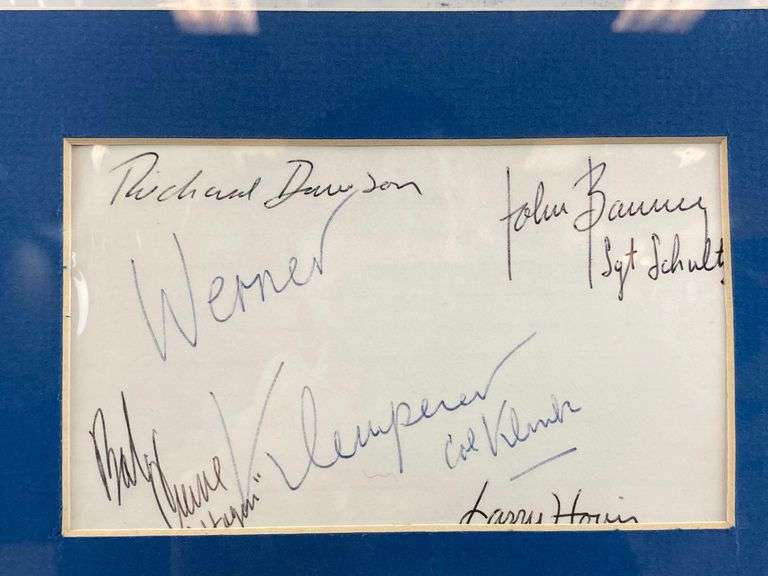 Richard Dawson
John Banner
Sgt Schultz
Werner
Klemperer
Col Klink
Bob Crane
"Hogan"
Larry Hovis